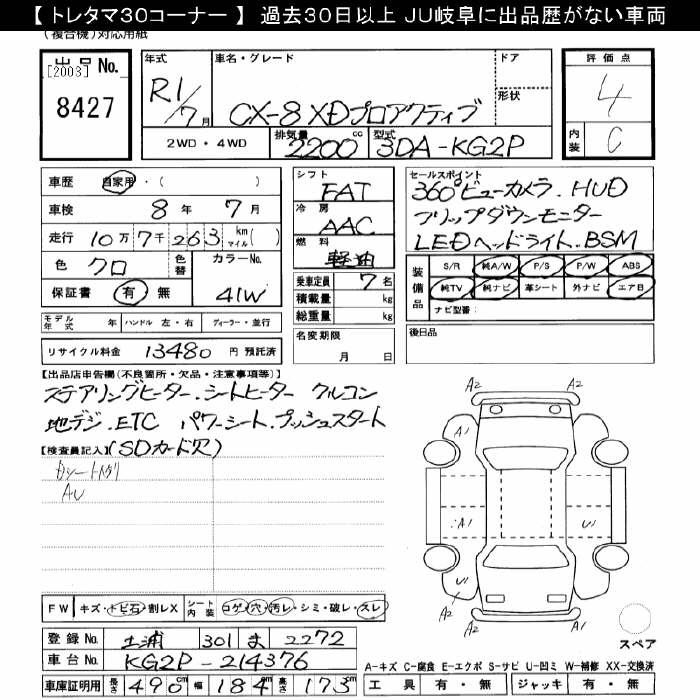 【 トレタマ30コーナー 】 過去30日以上 JU岐阜に出品歴がない車両
(複合機)対応用紙
出品 No.
[2003]
8427
年式
R1/7月
車名・グレード
CX-8 XDプロアクティブ
ドア
形状
評価点
4
内装
C
2WD・4WD
排気量
2200 cc
型式
3DA-KG2P
車歴 自家用・( )
車検 8年 7月
走行 10万7千263 km マイル( )
色 クロ 色替 カラーNo.
保証書 有 無 41W
シフト
FAT
冷房
AAC
燃料
軽油
乗車定員 7名
積載量 kg
総重量 kg
名変期限
月 日
セールスポイント
360°ビューカメラ.HUD
フリップダウンモニター
LEDヘッドライト.BSM
装備品
S/R 純A/W P/S P/W ABS
純TV 純ナビ 革シート 外ナビ エアB
ナビ型番:
後日品
モデル年式 年 ハンドル 左・右 ディーラー・並行
リサイクル料金 13480 円 預託済
【出品店申告欄(不良箇所・欠品・注意事項等)】
ステアリングヒーター.シートヒーター クルコン
地デジ.ETC パワーシート.プッシュスタート
(SDカード欠)
【検査員記入】
AU
A2
A2
A1
A1
U1
U1
A2
A2
FW キズ・トビ石・割レX シート内装 コゲ・穴・汚レ・シミ・破レ・スレ
登録 No. 土浦 301 ま 2272
車台 No. KG2P-214376
車庫証明用 長さ 490cm 幅 184cm 高さ 173cm
スペア
A-キズ C-腐食 E-エクボ S-サビ U-凹ミ W-補修 XX-交換済
工具 有・無 ジャッキ 有・無